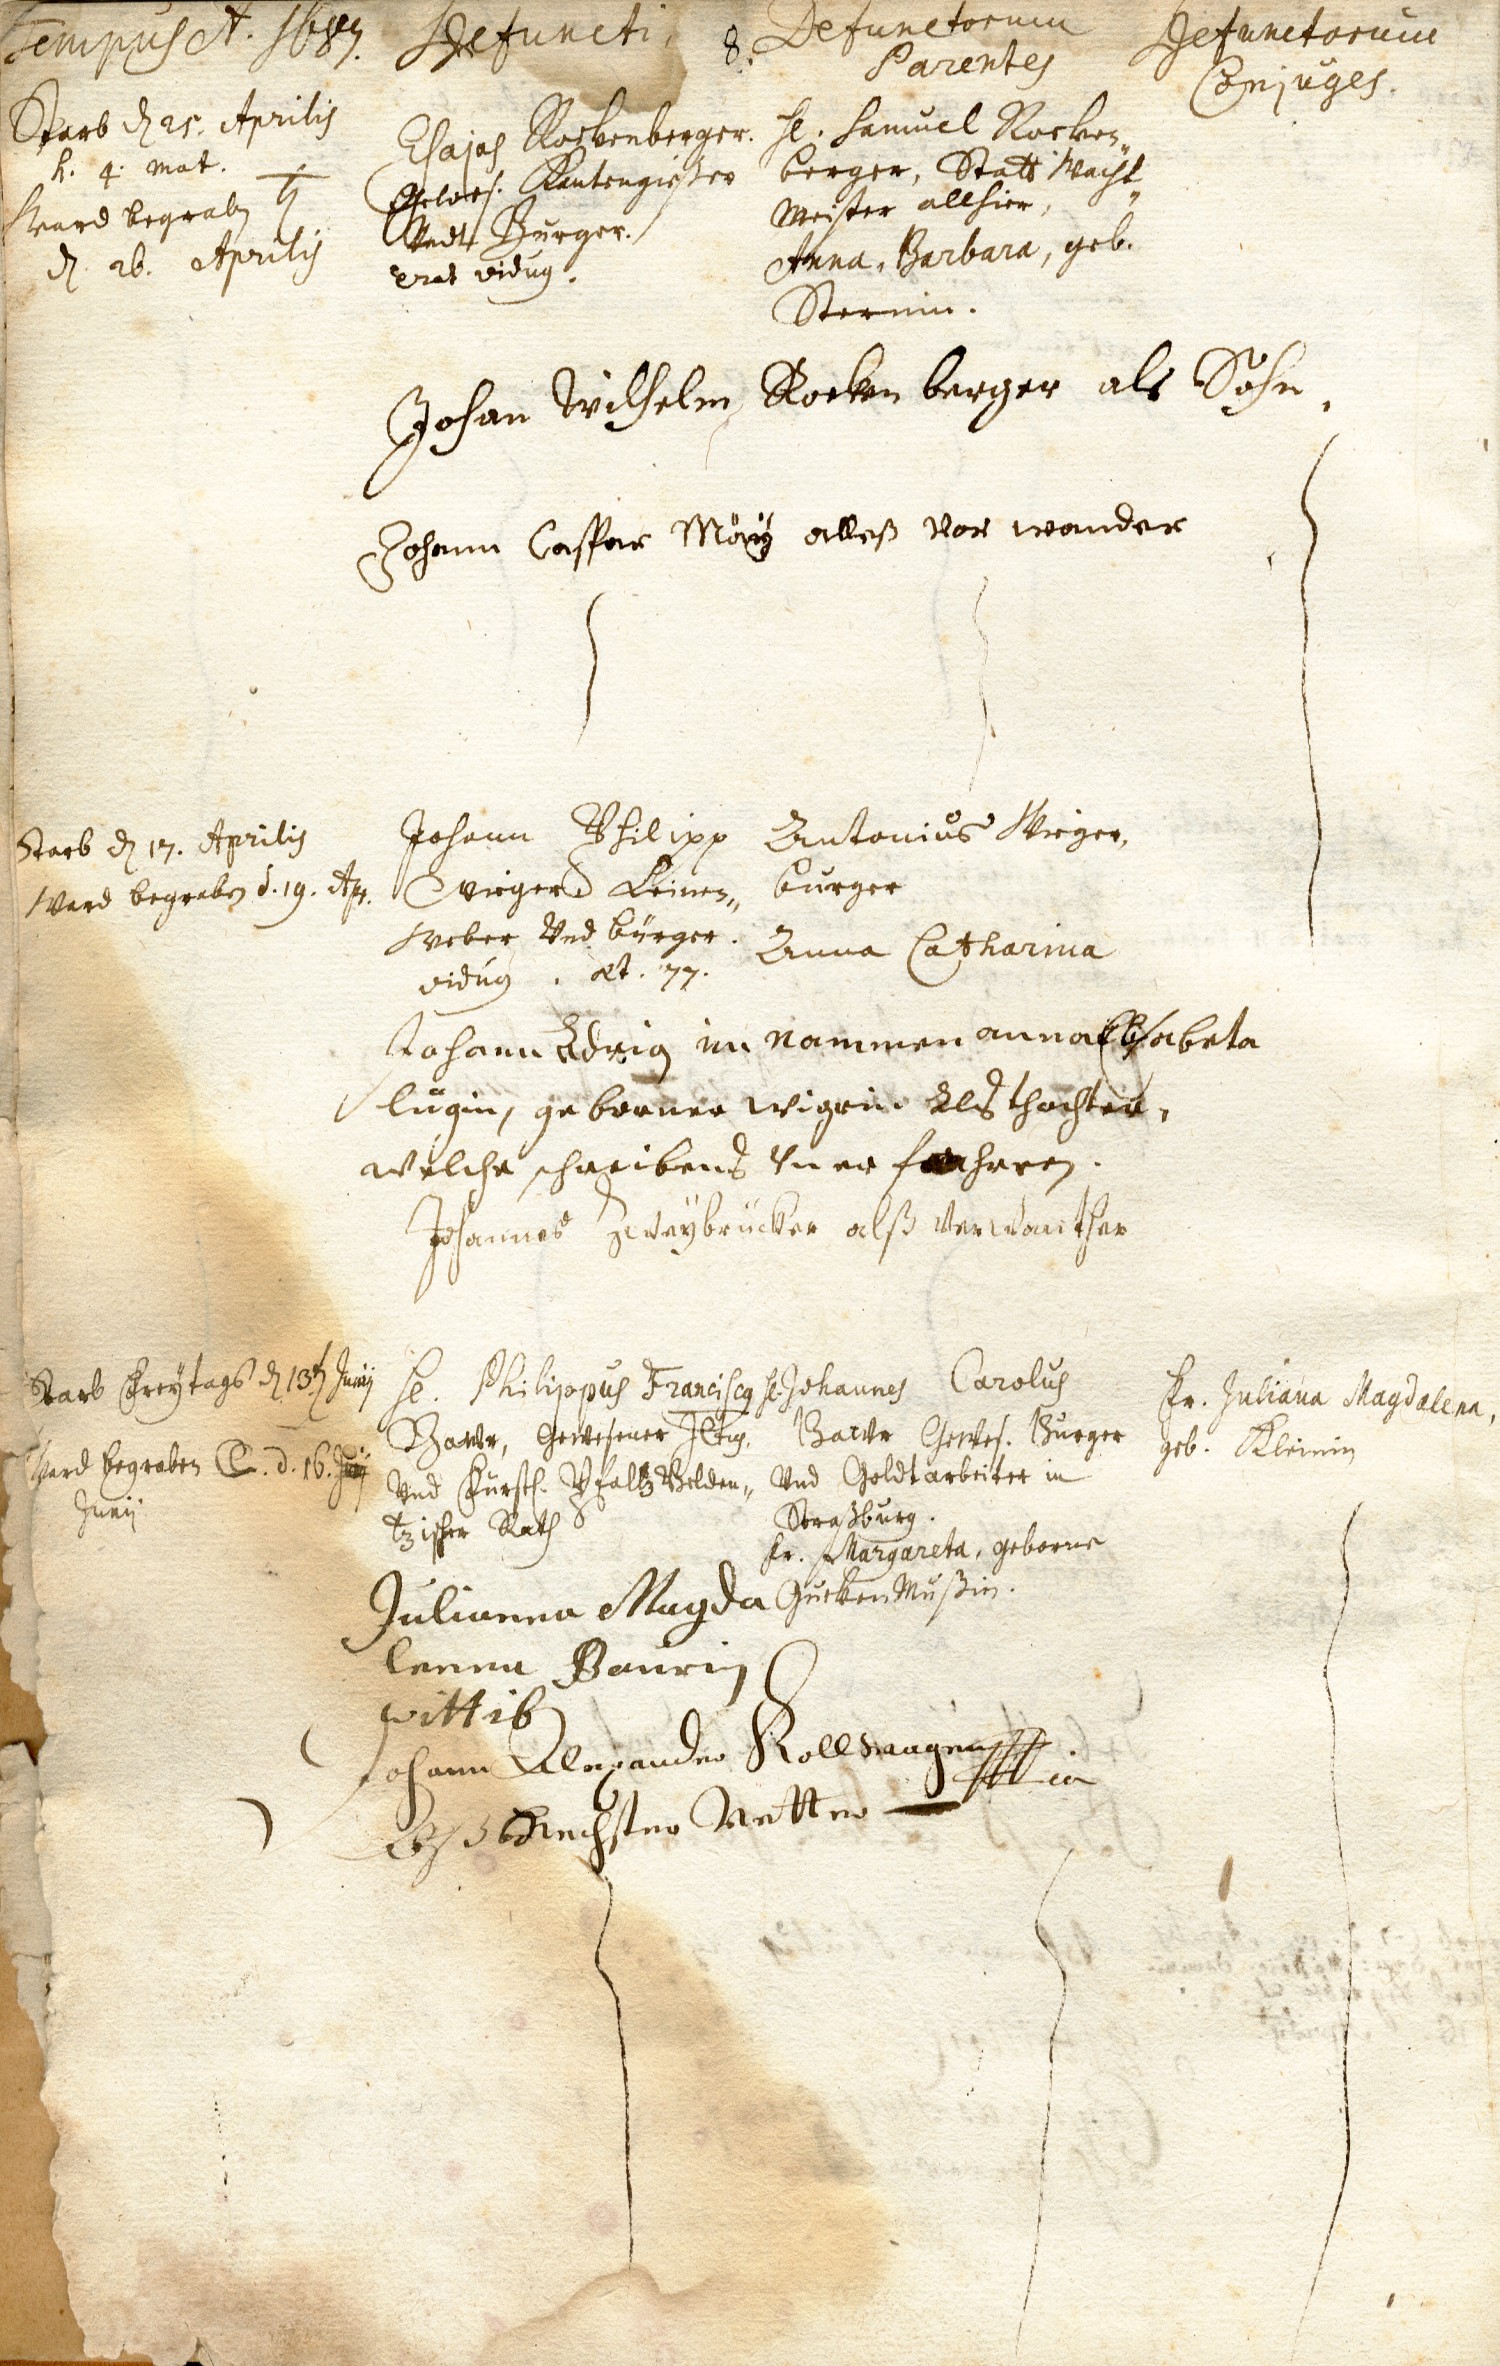 Tempus A. 1687.
Defuncti,
8.
Defunctorum
Parentes
Defunctorum
Conjuges.
Starb d 25. Aprilis
h. 4. mat.
Ward begraben
d. 26. Aprilis
Esajas Rockenberger.
Gewes. Kantengießer
Vndt Burger.
erat viduus.
H. Samuel Rocken„
berger, Statt Wacht„
Meister allhier,
Anna, Barbara, geb.
Sternin.
Johan Wilhelm Rockenberger als Sohn,
Johann Caspar alleß ver wander
Starb d 17. Aprilis
Ward begraben d. 19. Apr.
Johann Philipp
Wieger Leinen„
Weber Vnd bürger.
viduus. æt. 77.
Antonius Wieger,
burger
Anna Catharina
Johann im nammen anna Elisabeta
lügin, geborner wigerin Els thochter,
welche schreibens vner fahren.
Johannes Zweybrücker alß Verwanther
Starb Freytags d 13 Junij
Ward begraben d. 16.
Junij
H. Philippus Franciscus
Bawr, Gewesener
Vnd Fürstl. Pfaltz Velden„
tzischer Rath
H. Johannes Carolus
Bawr Gewes. Burger
Vnd Goldtarbeiter in
Straßburg.
Fr. Margareta, geborne
GuckenMußin.
Fr. Juliana Magdalena,
geb. Kleinin
Julianna Magda
lenna Baurin
wittib
Johann Alexander Rollwagen
nechster Vetter